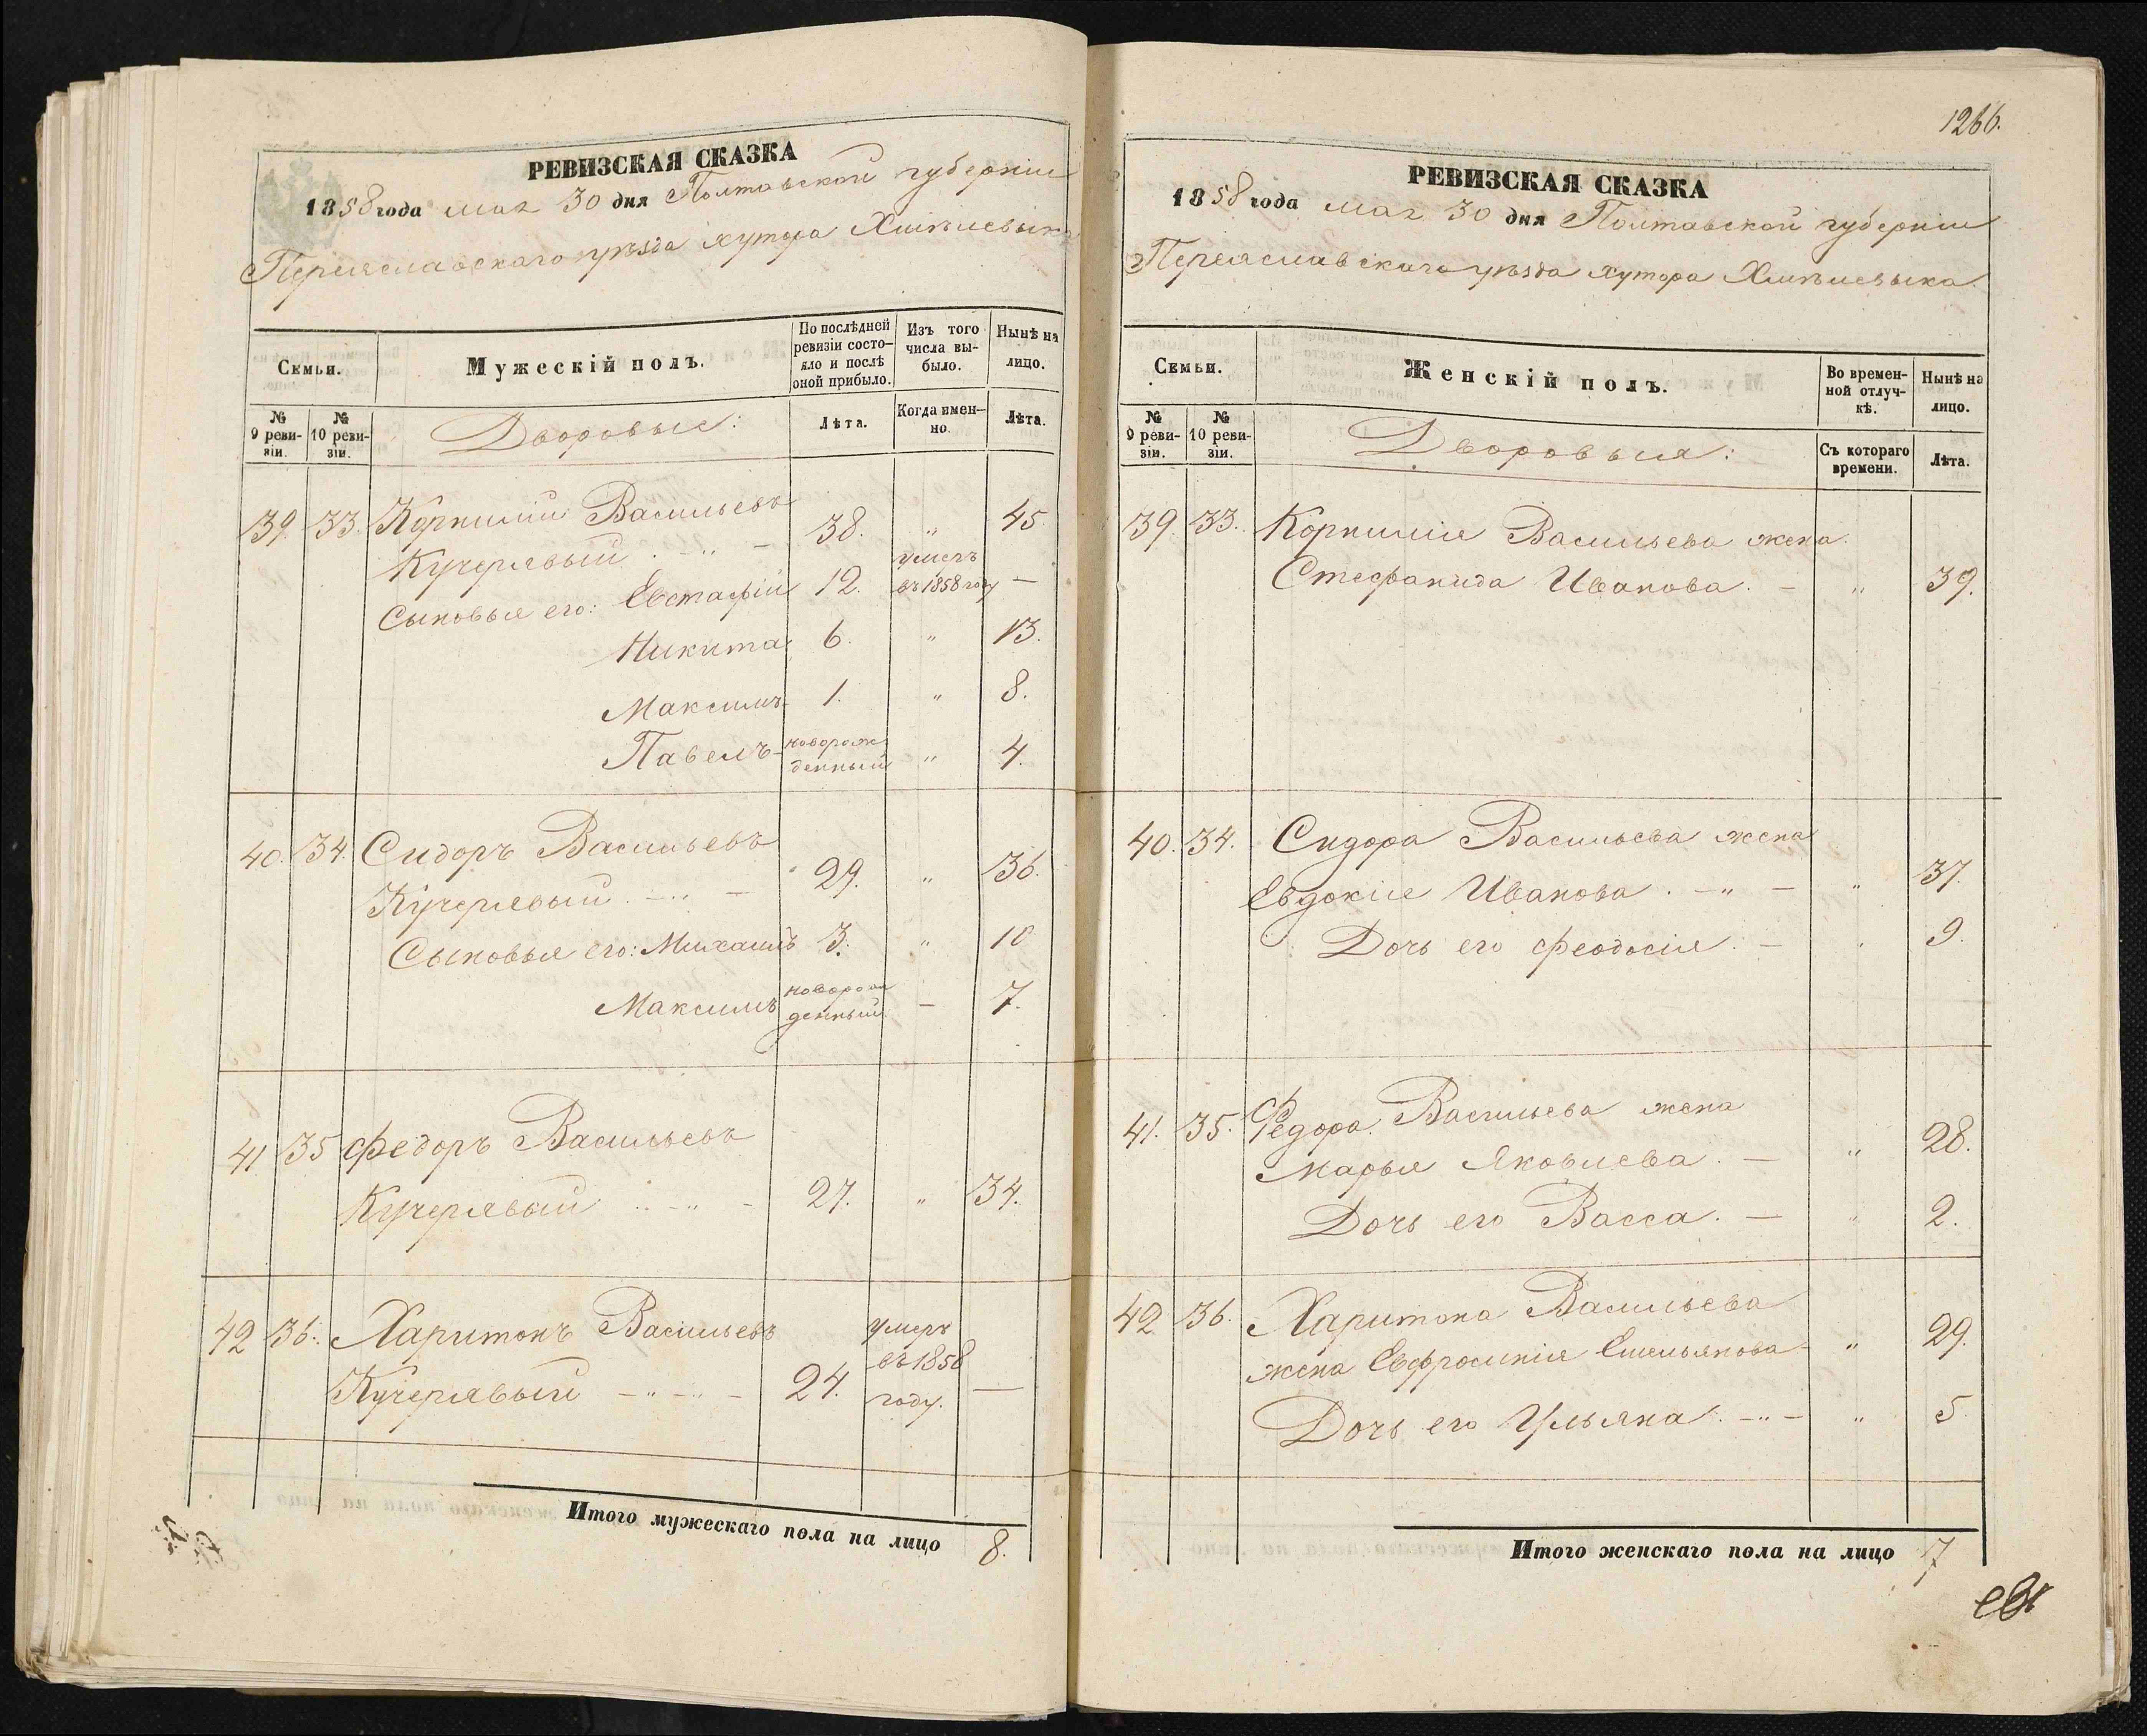 РЕВИЗСКАЯ СКАЗКА
1858 года мая 30 дня Полтавской губерніи
Переяславскаго уѣзда хутора Хмѣлевыка
Семьи.
Мужескій полъ.
По послѣдней ревизіи состояло и послѣ оной прибыло.
Изъ того числа выбыло.
Нынѣ на лицо.
№ 9 ревизіи.
№ 10 ревизіи.
Дворовые:
Лѣта.
Когда именно.
Лѣта.
39. 33. Корнилій Васильевъ
Кучерявый . - „ - 38. „ 45.
Сыновья его: Евстафій 12. умеръ въ 1858 году —
Никита 6. „ 13.
Максимъ 1. „ 8.
Павелъ - новорожденный „ 4.
40. 34. Сидоръ Васильевъ
Кучерявый . - „ - 29. „ 36.
Сыновья его: Михаилъ 3. „ 10
Максимъ новорожденный — 7.
41 35 Федоръ Васильевъ
Кучерявый . - „ - 27. „ 34.
42 36. Харитонъ Васильевъ
Кучерявый - „ - „ - 24. умеръ въ 1858 году. —
Итого мужескаго пола на лицо 8.
1266.
РЕВИЗСКАЯ СКАЗКА
1858 года мая 30 дня Полтавской губерніи
Переяславскаго уѣзда хутора Хмѣлевыка.
Семьи.
Женскій полъ.
Во временной отлучкѣ.
Нынѣ на лицо.
№ 9 ревизіи.
№ 10 ревизіи.
Дворовыя:
Съ котораго времени.
Лѣта.
39. 33. Корнилія Васильева жена
Стефанида Иванова. - „ 39.
40. 34. Сидора Васильева жена
Евдокія Иванова . - „ - „ 37.
Дочь его Феодосія. - „ 9.
41. 35. Федора Васильева жена
Марья Яковлева. - „ 28.
Дочь его Васса. - „ 2.
42 36. Харитона Васильева
жена Евфросинія Емельянова - „ 29.
Дочь его Ульяна. - „ - „ 5.
Итого женскаго пола на лицо 7